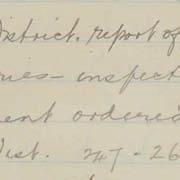 District. report of
ries - inspect
ent ordered
Dist. 247 - 26